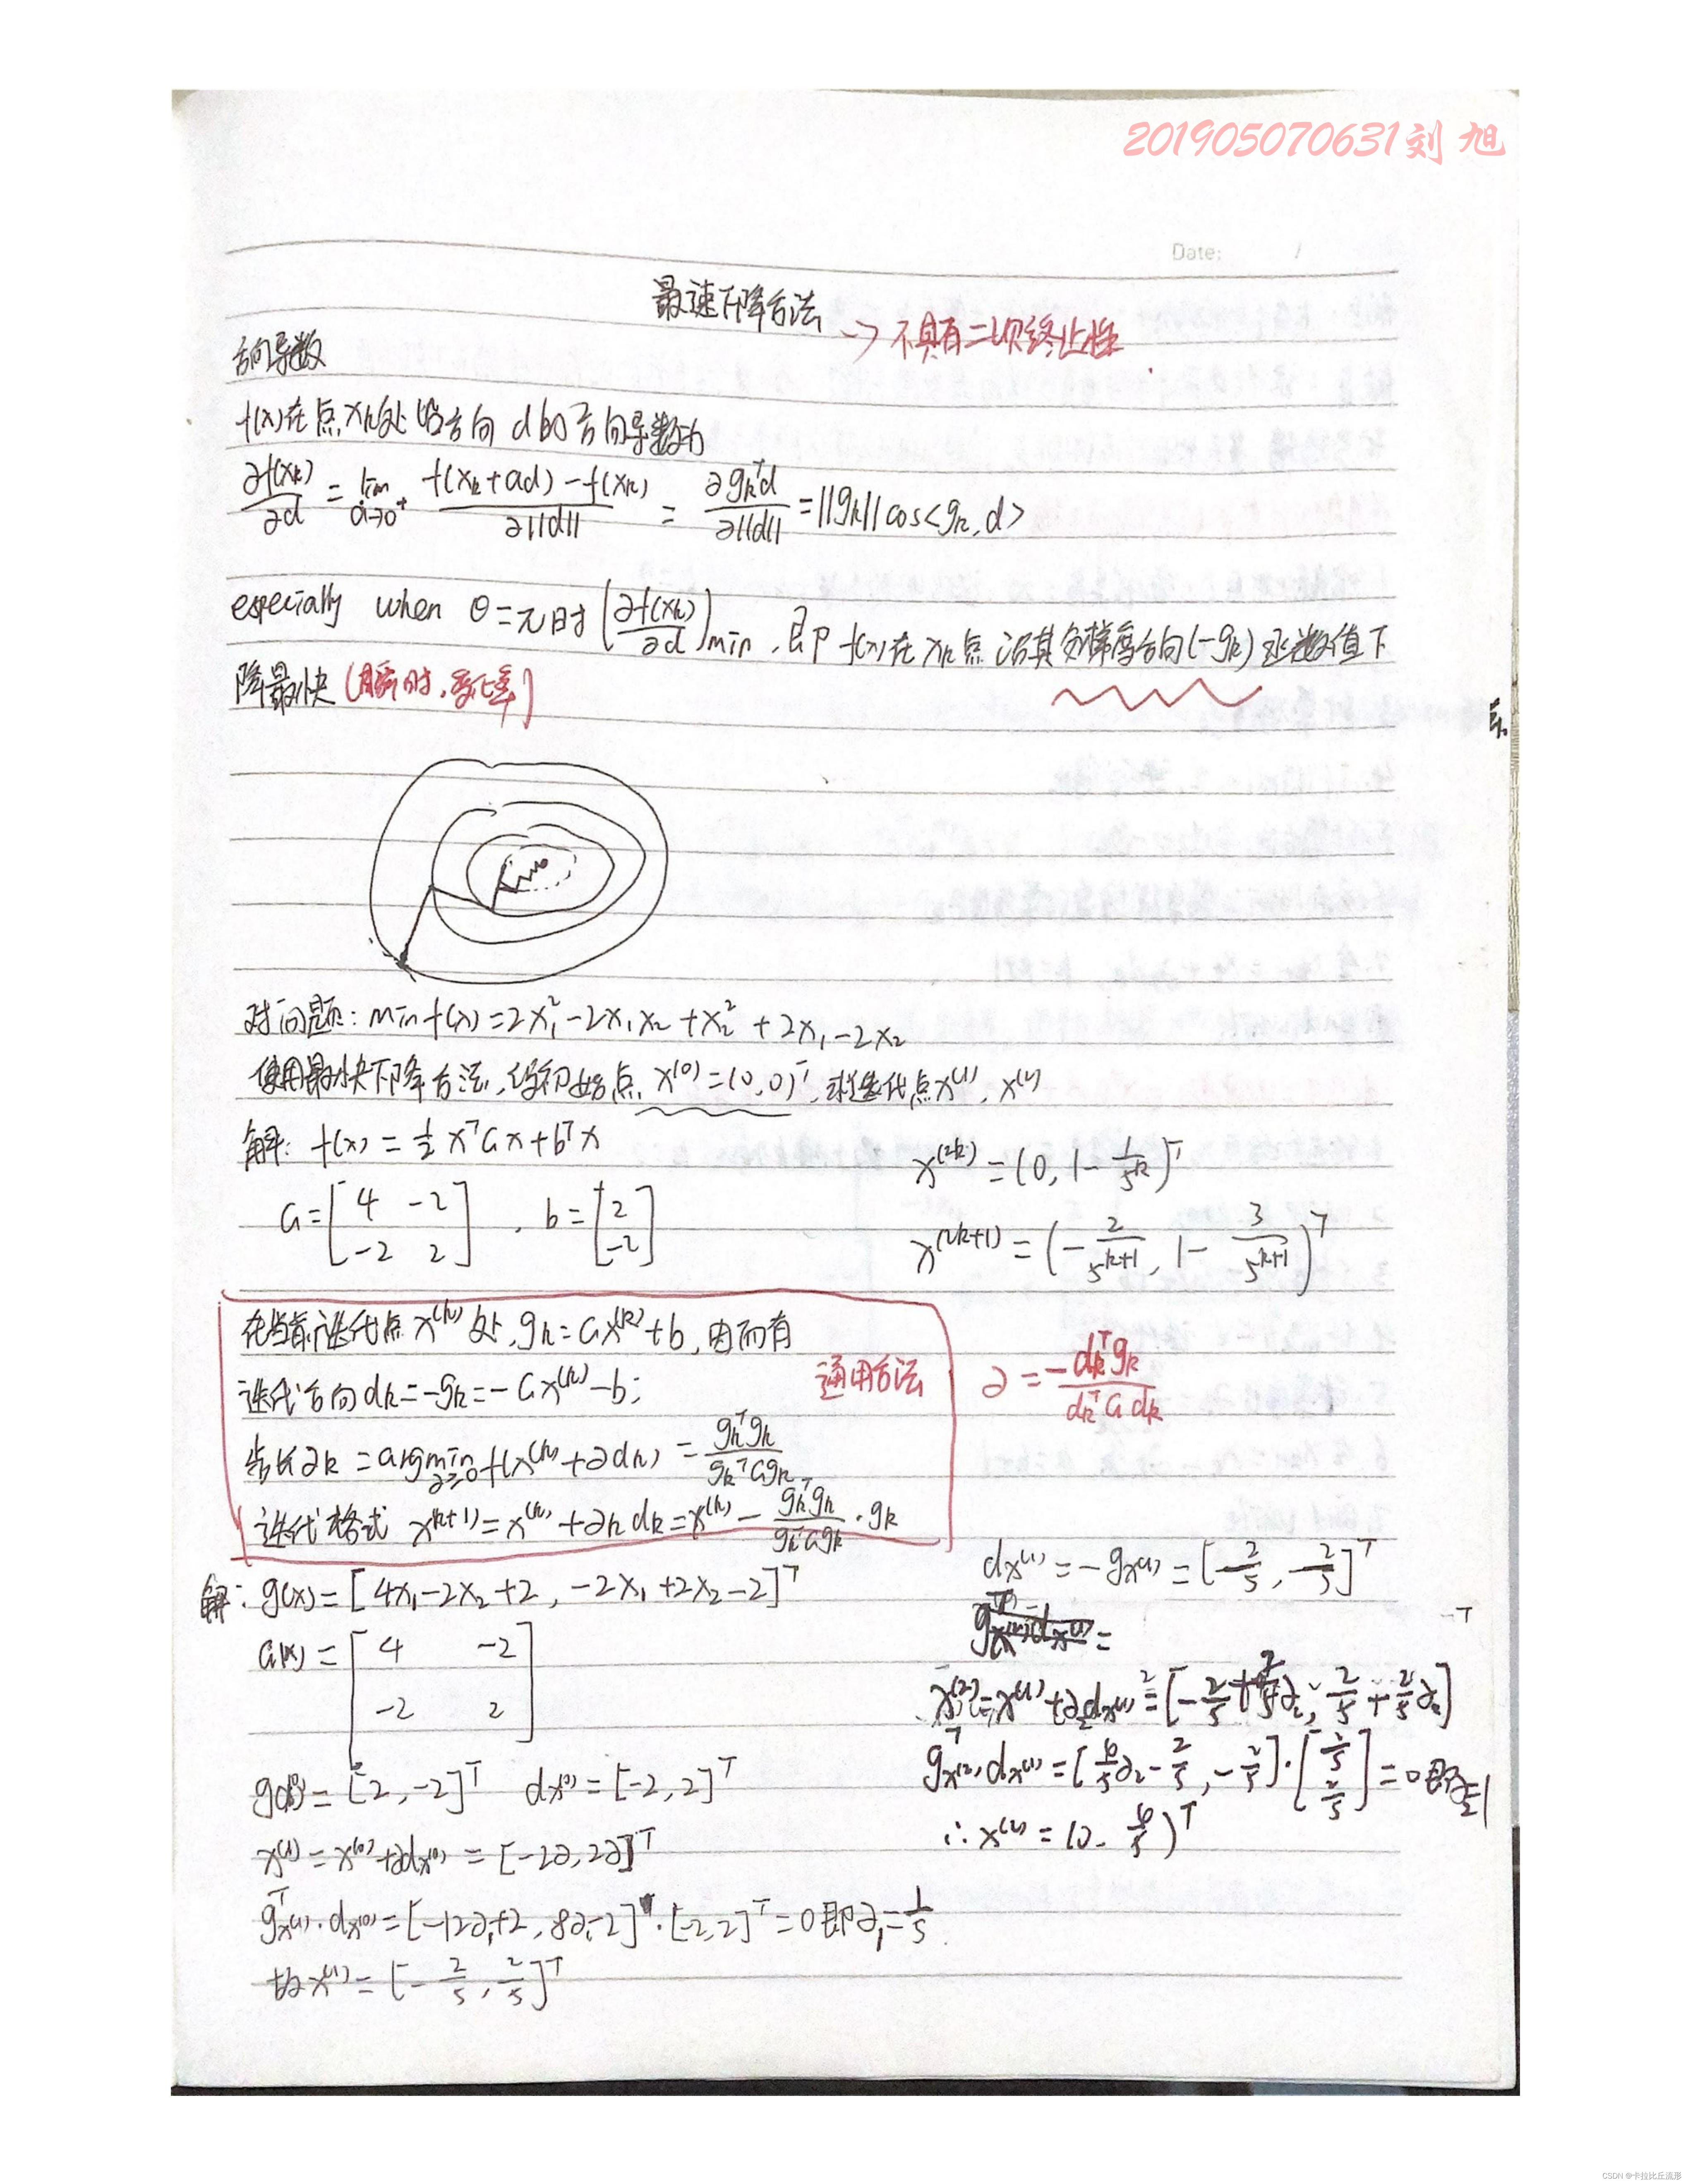 201905070631 刘 旭
Date: /
最速下降方法 → 不具有二次终止性
方向导数
f(x)在点xk处沿方向d的方向导数为
∂f(xk)/∂d = lim α→0⁺ (f(xk+αd)-f(xk))/(α||d||) = αgkᵀd/(α||d||) = ||gk|| cos<gk, d>
especially when θ=π时 (∂f(xk)/∂d)min , 即 f(x)在xk点沿其负梯度方向(-gk)函数值下
降最快 (瞬时,变化率)
对问题: min f(x) = 2x₁² - 2x₁x₂ + x₂² + 2x₁ - 2x₂
使用最快下降方法, 设初始点 x⁽⁰⁾=(0,0)ᵀ, 求迭代点x⁽¹⁾, x⁽²⁾
解: f(x) = ½ xᵀGx + bᵀx
G = [4 -2; -2 2] , b = [2; -2]
x⁽²ᵏ⁾ = (0, 1 - 1/5ᵏ)ᵀ
x⁽²ᵏ⁺¹⁾ = (-2/5ᵏ⁺¹, 1 - 3/5ᵏ⁺¹)ᵀ
在当前迭代点x⁽ᵏ⁾处, gk = Gx⁽ᵏ⁾+b, 因而有
迭代方向dk = -gk = -Gx⁽ᵏ⁾-b;
通用方法
α = -dkᵀgk / dkᵀG dk
步长αk = argmin α≥0 f(x⁽ᵏ⁾+αdk) = gkᵀgk / gkᵀGgk
迭代格式 x⁽ᵏ⁺¹⁾ = x⁽ᵏ⁾ + αk dk = x⁽ᵏ⁾ - gkᵀgk / gkᵀGgk · gk
解: g(x) = [4x₁-2x₂+2, -2x₁+2x₂-2]ᵀ
G(x) = [4 -2; -2 2]
gx⁽⁰⁾ = [2, -2]ᵀ dx⁽⁰⁾ = [-2, 2]ᵀ
x⁽¹⁾ = x⁽⁰⁾+αdx⁽⁰⁾ = [-2α, 2α]ᵀ
gᵀx⁽¹⁾·dx⁽⁰⁾ = [-12α₁+2, 8α₁-2]·[-2,2]ᵀ = 0 即α₁=1/5
故x⁽¹⁾ = [-2/5, 2/5]ᵀ
dx⁽¹⁾ = -gx⁽¹⁾ = [2/5, 2/5]ᵀ
x⁽²⁾ = x⁽¹⁾+α₂dx⁽¹⁾ = [-2/5+2/5α₂, 2/5+2/5α₂]ᵀ
gᵀx⁽²⁾ dx⁽¹⁾ = [4/5α₂-2/5, -2/5]·[2/5; 2/5] = 0 即α₂=1
∴ x⁽²⁾ = (0, 4/5)ᵀ
CSDN @卡拉比丘流形